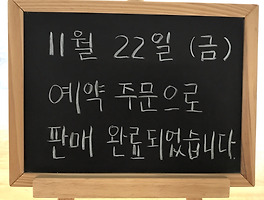 11월 22일 (금)
예약 주문으로
판매 완료되었습니다.